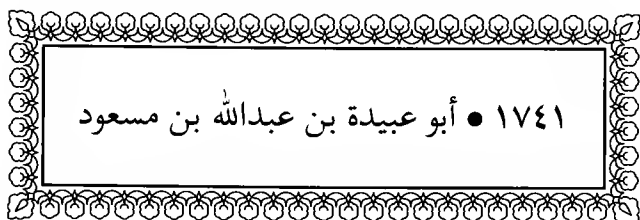 ١٧٤١ • أبو عبيدة بن عبدالله بن مسعود